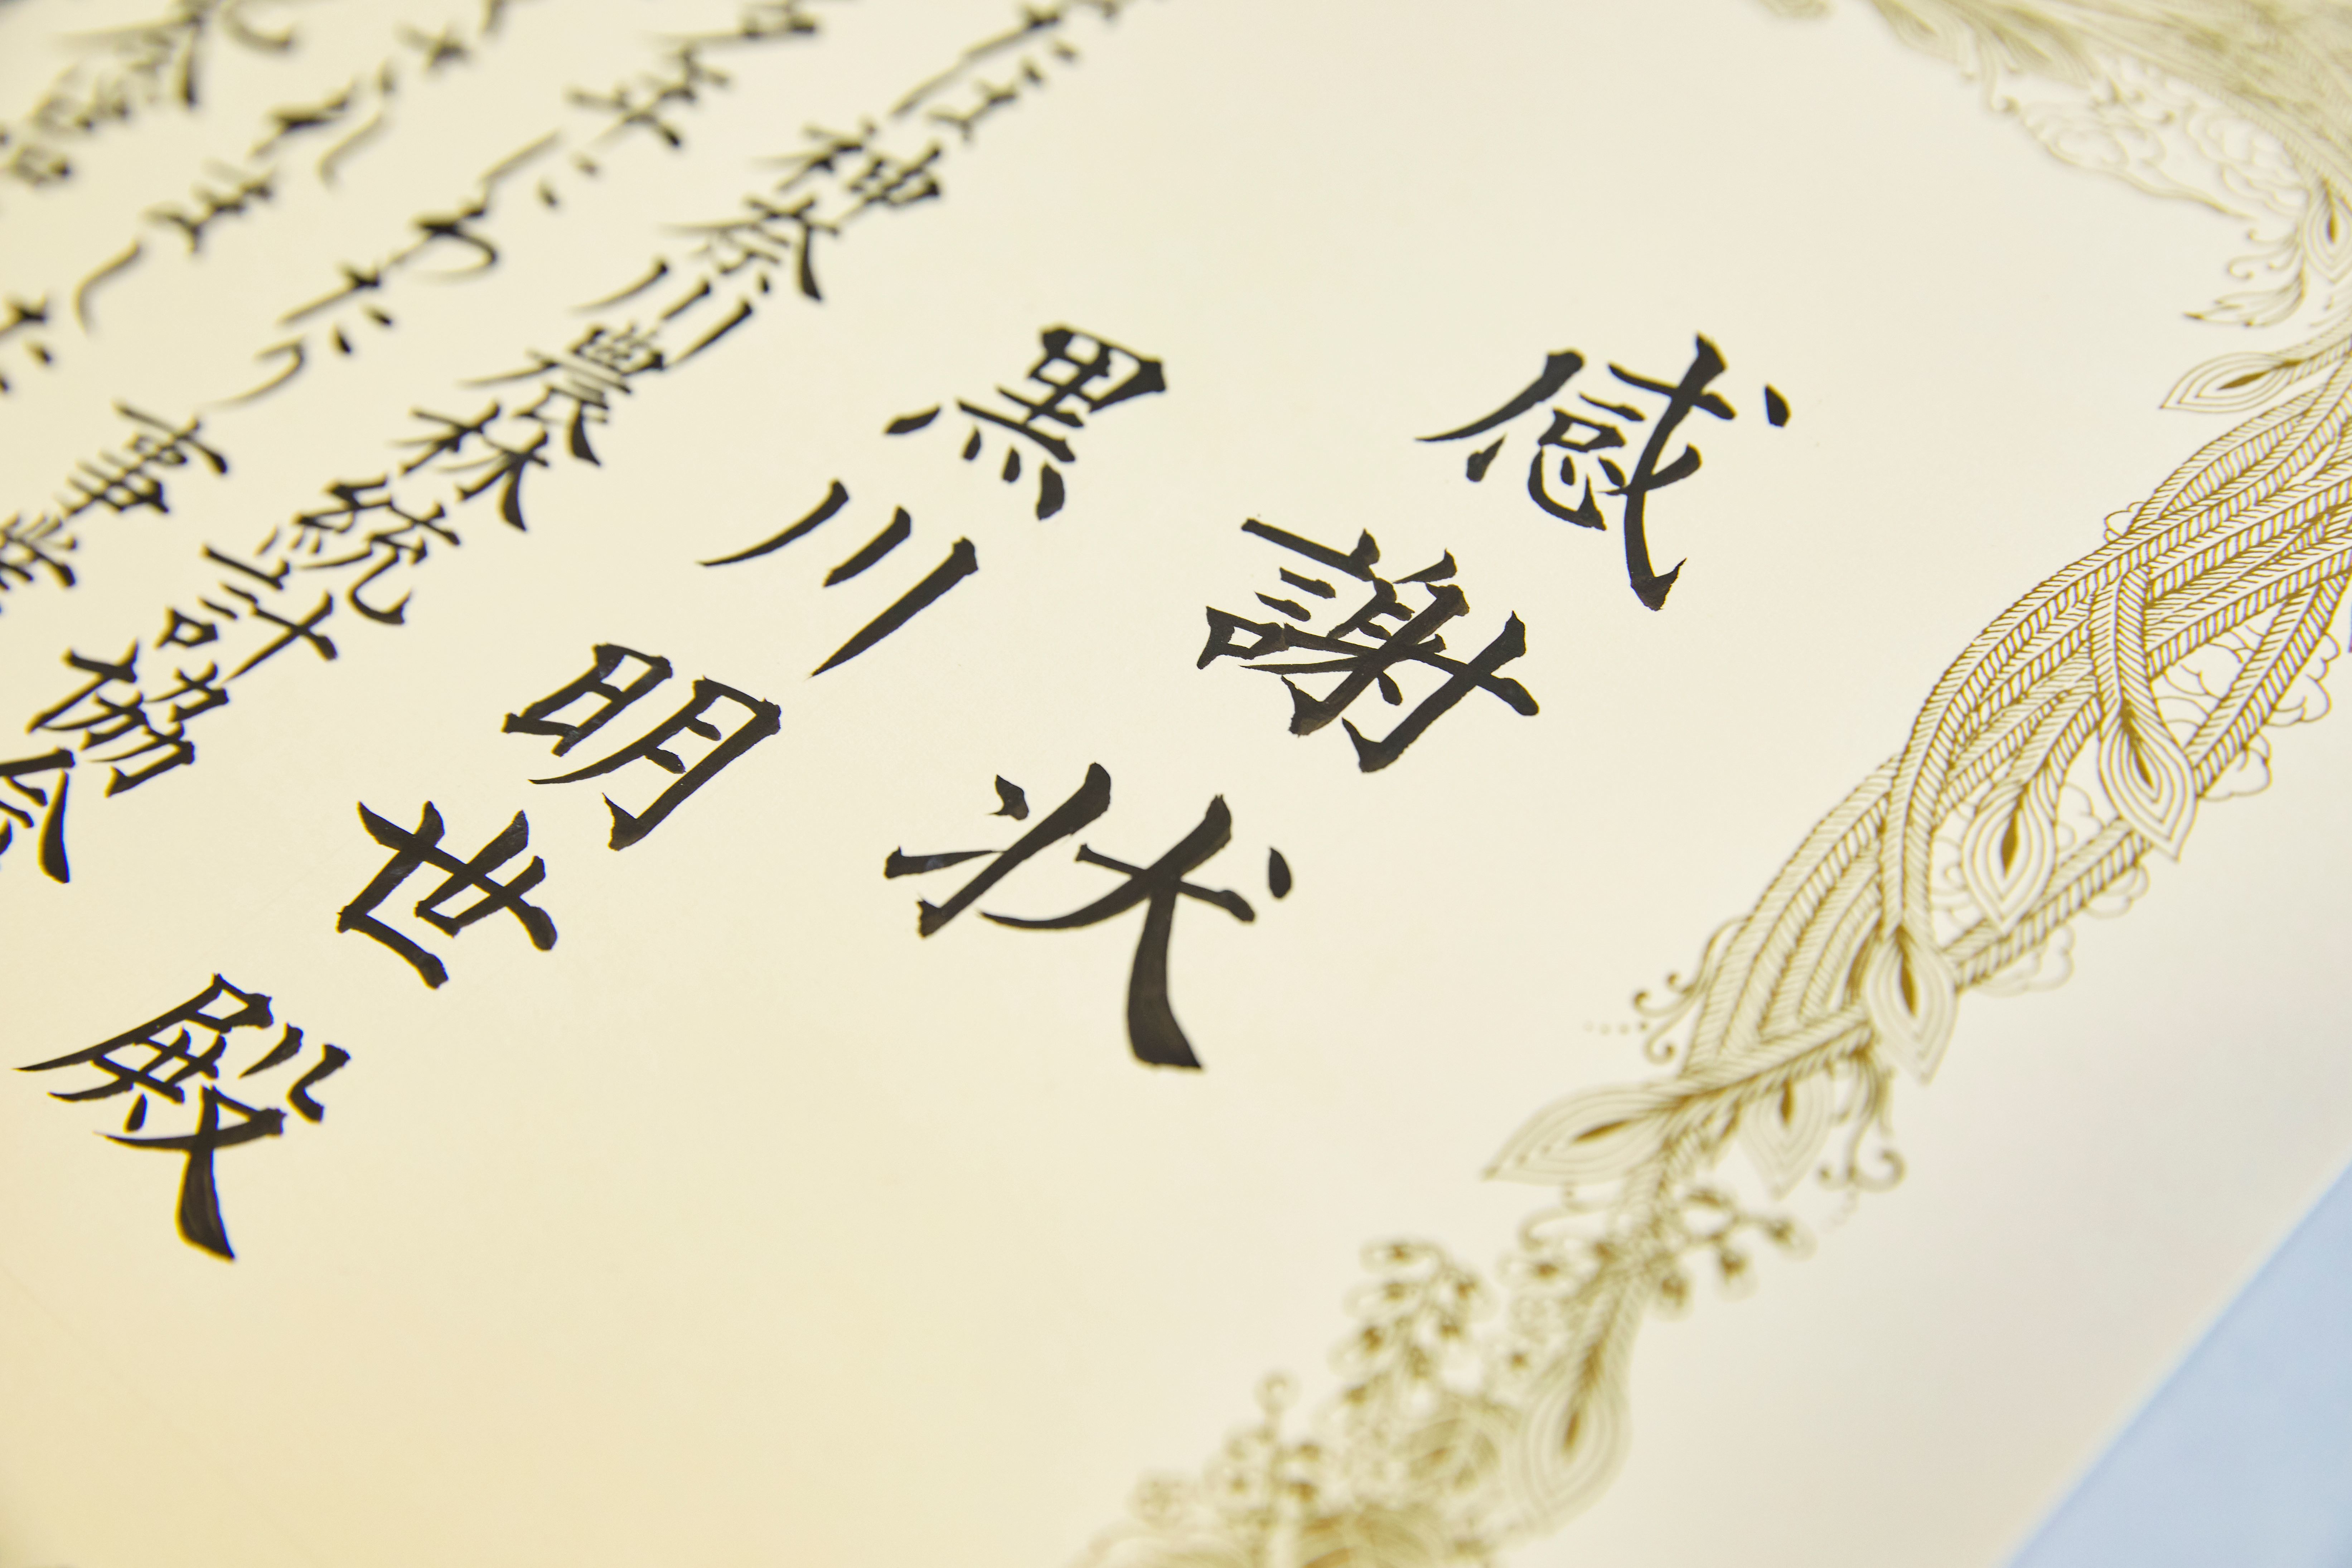 感謝状
黒川明世殿
たは神奈川農林統計協会
年にわたり
されまし
事業